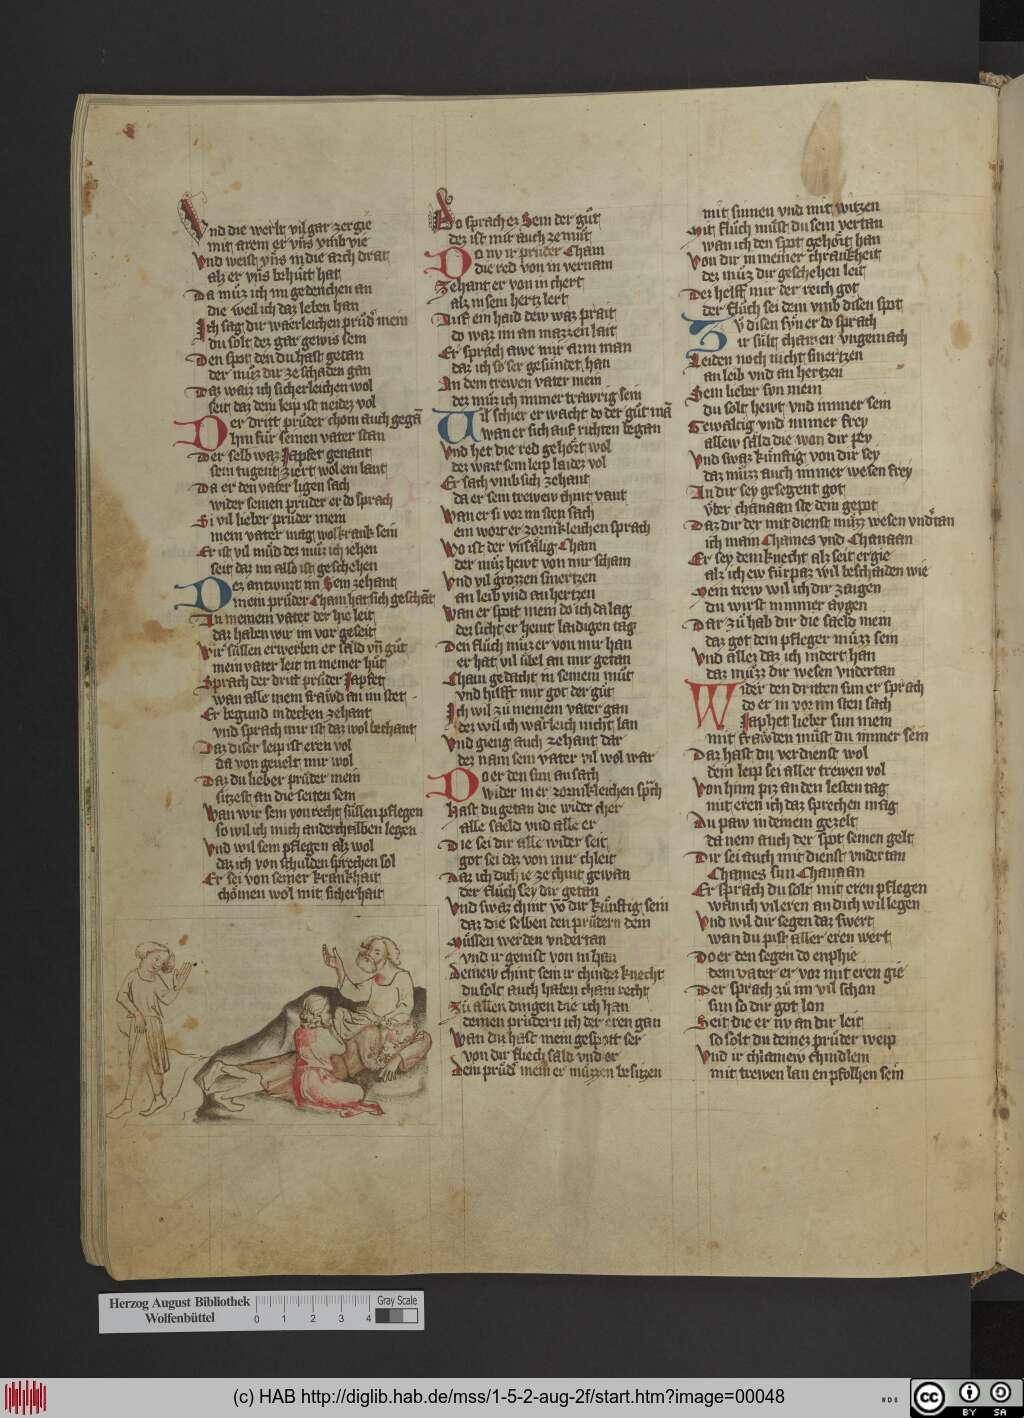 Vnd die werlt vil gar zergie
mit armen er vns vmb vie
Vnd weist vns in die arch drat
alz er vns behuet hat
Da muͤz ich im gedenchen an
die weil ich daz leben han
Ich sag dir waerleichen pruͦder mein
du solt dez gar gewis sein
Den spot den du hast getan
der muͤz dir ze schaden gan
Daz waiz ich sicherleichen wol
seit daz dein leip ist neidez vol
Der dritt pruͤder chom auch gegā
hin fuͤr seinen vater stan
Der selb waz Japhet genant
sein tugent ziert wol ein lant
Da er den vater ligen sach
wider seinen pruder er do sprach
Si vil lieber pruder mein
mein vater mag wol krank sein
Er ist vil muͤd dez muͤz ich iehen
seit daz im also ist geschehen
Dez antwurt im Sem zehant
mein pruͤder Cham hat sich geschāt
An meinem vater der hie leit
daz haben wir im vor geseit
Wir suͤllen erwerben er saͤld vn̄ guͤt
mein vater leit in meiner huͤt
Sprach der dritt pruder Japhet
wan alle mein frawd an im stet
Er begund in decken zehant
vnd sprach mir ist daz wol bechant
Daz diser leip ist eren vol
da von geuelt mir wol
Daz du lieber pruͤder mein
sitzest an die seiten sein
Wan wir sein von recht suͤllen pflegen
so wil ich mich anderthalben legen
Vnd wil sein pflegen alz wol
daz ich von schulden sprechen sol
Er sei von seiner krankhait
chomen wol mit sicherhait
Do sprach ez Sem der guͤt
dez ist mir auch ze muͤt
Do nv ir pruder Cham
die red von in vernam
Zehant er von in chert
alz in sein hertz lert
Auf ein haid dew waz prait
do waz im an mazzen lait
Er sprach awe mir arm man
daz ich so ser gesundet han
An dem trewen vater mein
dez muͤz ich immer trawrig sein
Vil schier er wacht do der guͤt mā
wan er sich auf richten began
Vnd het die red gehoͤrt wol
dez wart sein leip laidez vol
Er sach vmb sich zehant
da er sein trewew chint vant
Wan er si vor im sten sach
ein wort er zornikleichen sprach
Wo ist der vnsaͤlig Cham
der muͤz hewt von mir scham
Vnd vil grozzen smertzen
an leib vnd an hertzen
Wan er spott mein do ich da lag
dez sicht er hewt laidigen tag
Den fluch muͤz er von mir han
er hat vil vbel an mir getan
Cham gedacht in seinem muͤt
vnd hilfft mir got der guͤt
Ich wil zu meinem vater gan
dez wil ich waͤrleich nicht lan
Vnd gieng auch zehant dar
dez nam sein vater vil wol war
Do er den sun an sach
wider in er zornikleichen sprͣch
Hast du getan die wider cher
alle saeld vnd alle er
Die sei dir alle wider seit
got sei daz von mir chleit
Daz ich dich ie ze chint gewan
der fluͤch sey dir getan
Vnd swaz chint vō dir kuͤnftig sein
daz die selben den pruͤdern dein
Muͤssen werden vndertan
vnd ir genist von in han
Deinew chint sein ir chinder knecht
du solt auch haben cham recht
Zu allen dingen die ich han
deinen prudern ich der eren gan
Wan du hast mein gespott ser
von dir fliech saͤld vnd er
Dein pruͦd̕ mein er muͤzzen besitzen
mit sinnen vnd mit witzen
Mit fluͤch muͤst du sein vertan
wan ich den spot gehoͤrt han
Von dir in meiner chrankheit
dez muͤz dir geschehen leit
Dez helff mir der reich got
der fluͤch sei dem vmb disen spot
Zv disen suͤn er do sprach
ir suͤlt chainen vngemach
Leiden noch nicht smertzen
an leib vnd an hertzen
Sem lieber sun mein
du solt hewt vnd immer sein
Gewaltig vnd immer frey
allew saͤld die won dir pey
Vnd swaz kuͤnftig von dir sey
daz muͤzz auch immer wesen frey
An dir sey gesegent got
vber chanaan ste dein gepot
Daz dir der mit dienst muͤzz wesen vndͤtan
ich main Chames vnd Chanaan
Er sey dein knecht alz seit er gie
alz ich ew fuͤrpaz wil beschaiden wie
Mein trew wil ich dir zaigen
du wirst nimmer aygen
Dar zuͤ hab dir die saeld mein
daz got dein pfleger muͤzz sein
Vnd allez daz ich indert han
daz muͤzz dir wesen vndertan
Wider den dritten sun er sprach
do er in vor im sten sach
Japhet lieber sun mein
mit frawden muͤst du immer sein
Daz hast du verdienst wol
dein leip sei aller trewen vol
Von hinn piz an den lesten tag
mit eren ich daz sprechen mag
Nu paw in deinem gezelt
da nem auch der spot seinen gelt
Dir sei auch mit dienst vndertan
Chames sun Chanaan
Er sprach du solt mit eren pflegen
wan ich vil eren an dich wil legen
Vnd wil dir segen daz swert
wan du pist aller eren wert
Do er den segen do enphie
dem vater er vor mit eren gie
Der sprach zuͤ im vil schon
sun so dir got lon
Seit die er nv an dir leit
so solt du deinez pruder weip
Vnd ir chlainew chindlein
mit trewen lan enpfolhen sein
Herzog August Bibliothek
Wolfenbüttel
0 1 2 3 4
Gray Scale
(c) HAB http://diglib.hab.de/mss/1-5-2-aug-2f/start.htm?image=00048
WD6
cc BY SA